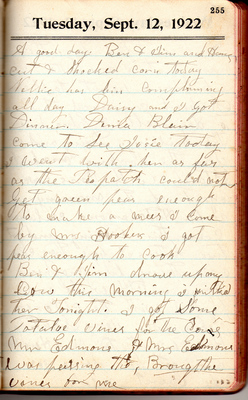 255
Tuesday, Sept. 12, 1922
A good day Ben & Jim and Harry
cut & shocked corn today
has bin complaining
all day Daisy and I got
Dinner. Blain
come to see Josie today
I went with her as far
as the patch could not
get green peas enough
to make a mess I come
by Mrs Hooker I got
peas enough to cook
Ben & Jim drove up my
Cow this morning I
her Tonight. I got some
Tatatoe vines for the Cows
Mrs Edmons & Mrs Edmons
was passing the Brough the
vines for me